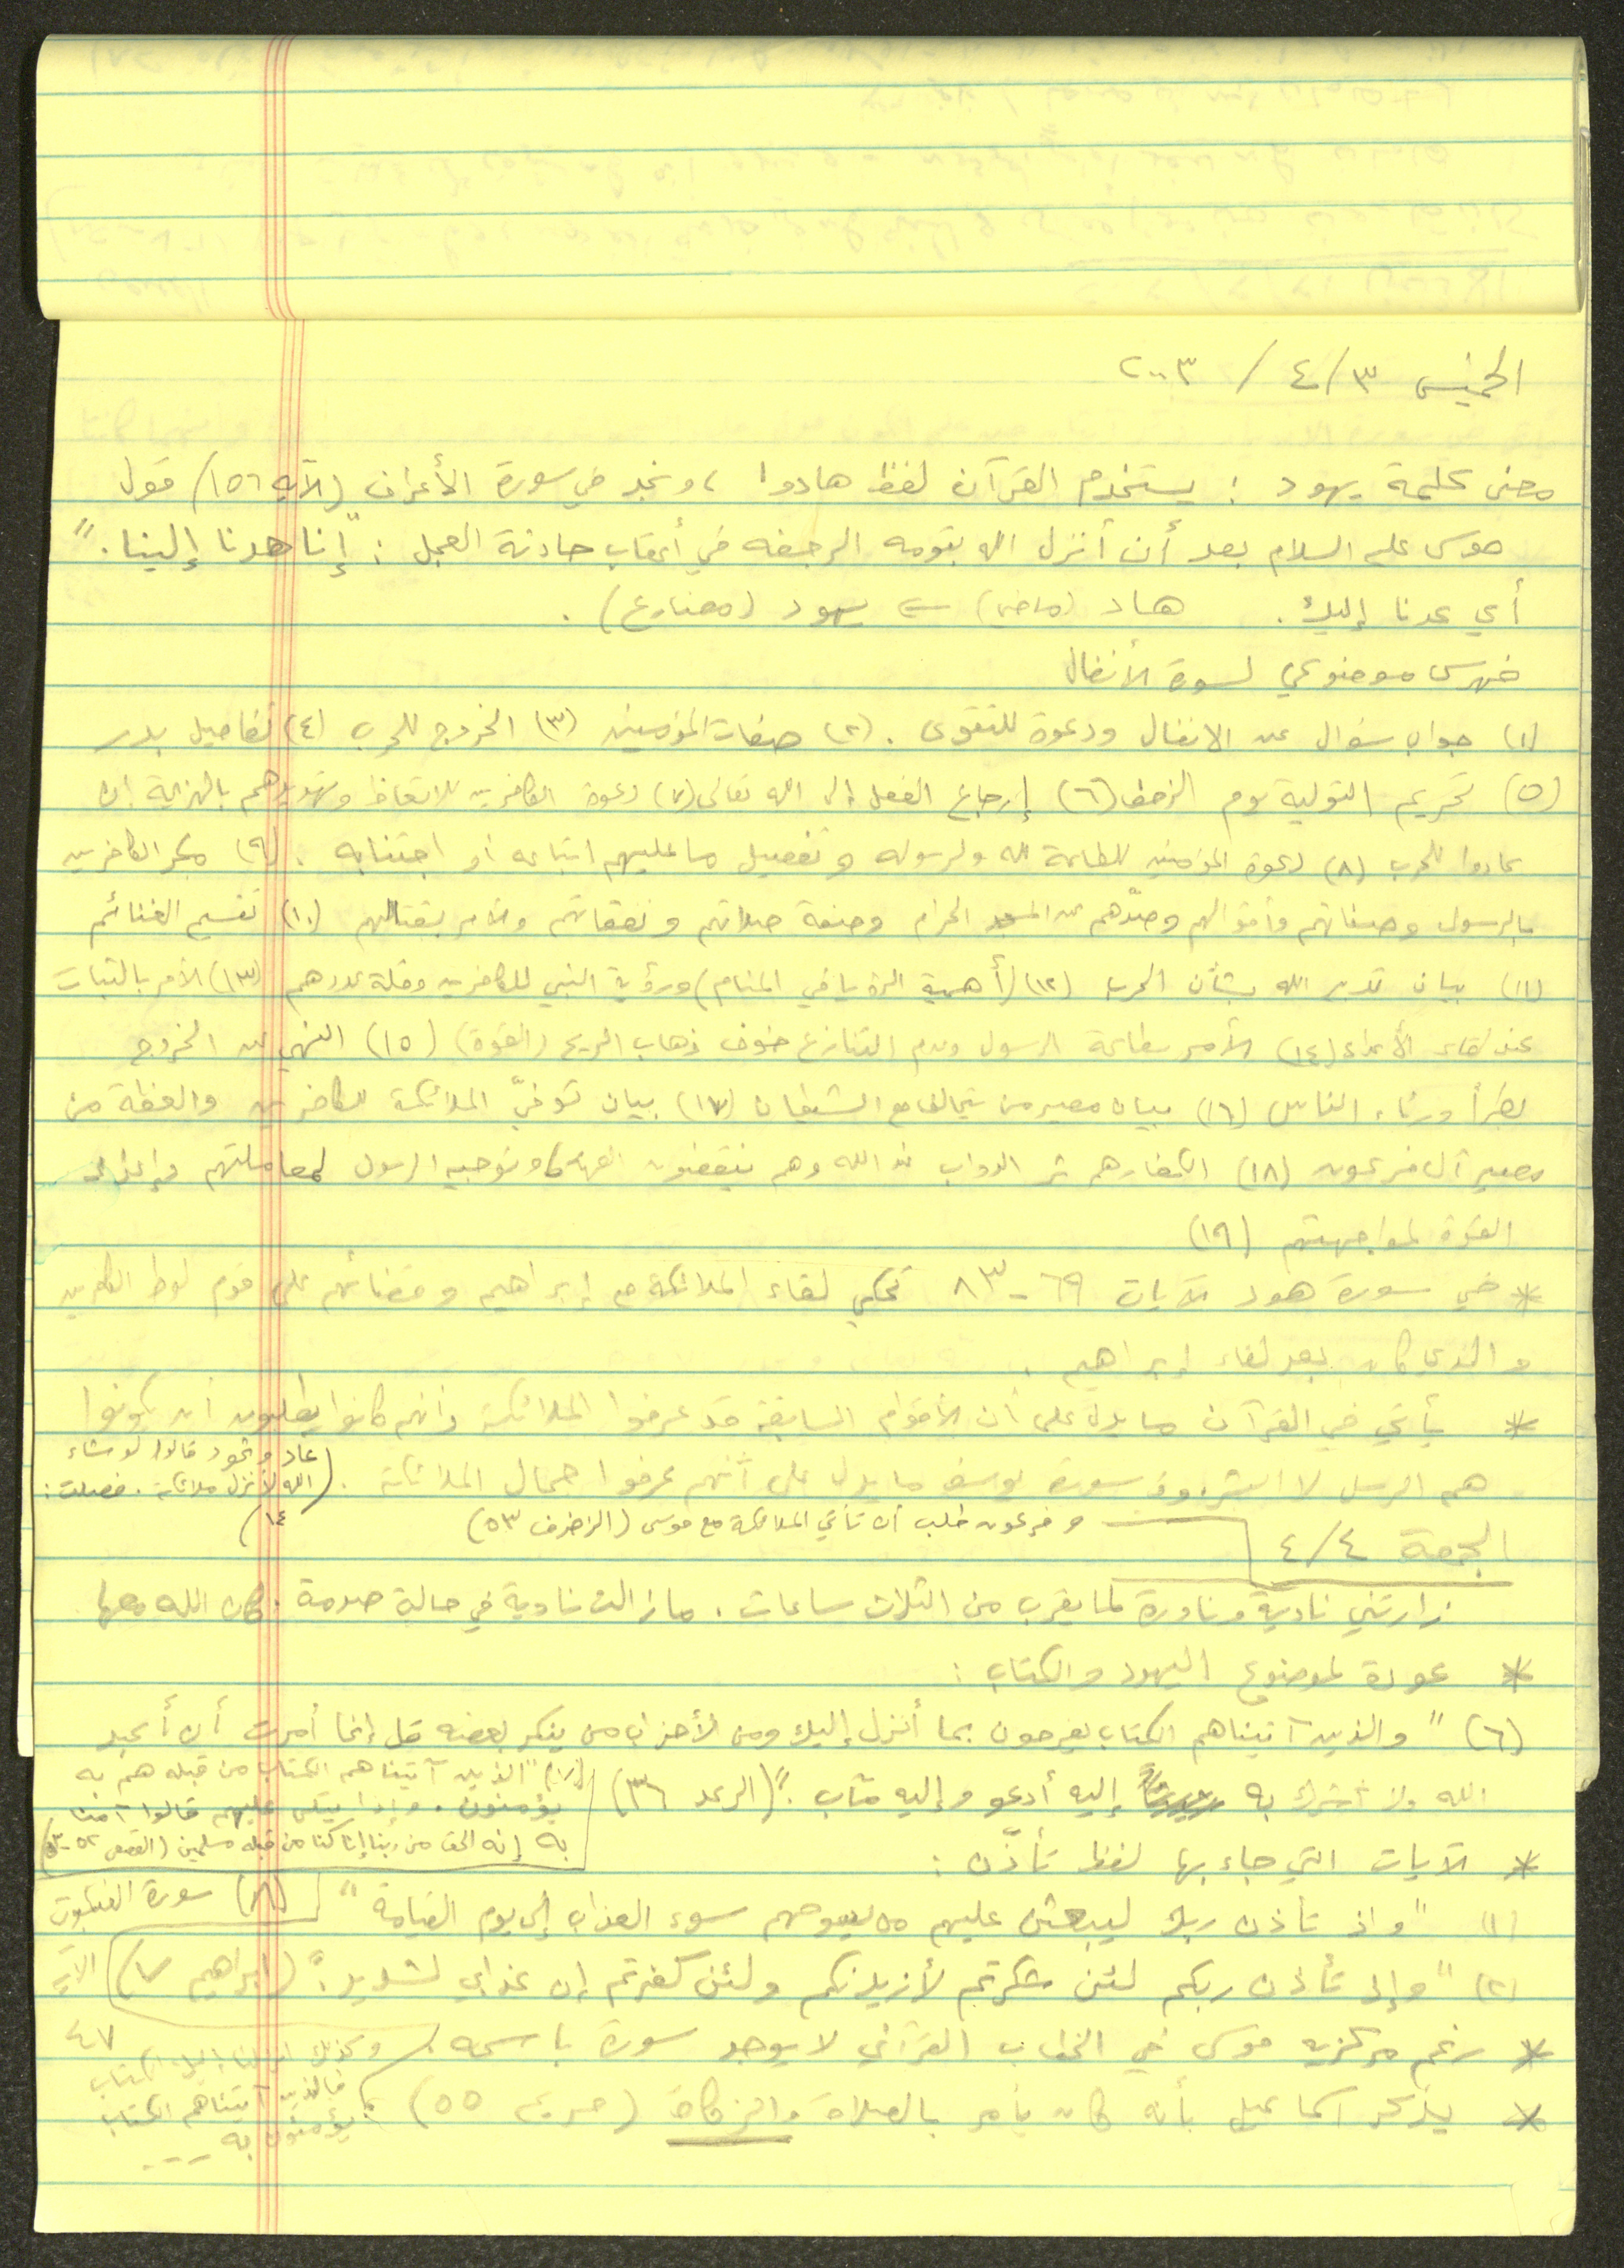 الخميس ٣/٤/ ٢٠٠٣
معنى كلمة يهود : يستخدم القرآن لفظ هادوا ، ونجد في سورة الأعراف (الآية ١٥٦) قول
موسى عليه السلام بعد أن أنزل الله بقومه الرجفه في أعقاب حادثة العجل : "إنا هدنا إلينا. "
أي عدنا إليك. هاد (ماضي) ← يهود (مضارع) .
فهرس موضوعي لسورة الأنفال
(١) جواب سؤال عن الانفال ودعوة للتقوى . (٢) صفات المؤمنين (٣) الخروج للحرب (٤) تفاصيل بدر
(٥) تحريم التولية يوم الزحف (٦) إرجاع الفعل إلى الله تعالى (٧) دعوة الكافرين للاتعاظ وتهديدهم بالهزيمة إن
عادوا للحرب (٨) دعوة المؤمنين لطاعة الله ولرسوله وتفصيل ما عليهم اتباعه أو اجتنابه . (٩) مكر الكافرين
بالرسول وصفاتهم وأقوالهم وصدّهم عن المسجد الحرام وصفة صلاتهم ونفقاتهم والأمر بقتالهم (١٠) تقسيم الغنائم
(١١) بيان تدبير الله بشأن الحرب (١٢) (أهمية الرؤيا في المنام) ورؤية النبي للكافرين وقلة عددهم (١٣) الأمر بالثبات
عند لقاء الأعداء (١٤) الأمر بطاعة الرسول وعدم التنازع خوف ذهاب الريح (القوة) (١٥) النهي عن الخروج
بطراً ورئاء الناس (١٦) بيان مصير من يتحالف مع الشيطان (١٧) بيان توفيّ الملائكة للكافرين والعظة من
مصير آل فرعون (١٨) الكفار هم شر الدواب عند الله وهم ينقضون العهد وتوجيه الرسول لمعاملتهم وإعداد
القوة لمواجهتهم (١٩)
* في سورة هود الآيات ٦٩-٨٣ تحكي لقاء الملائكة مع إبراهيم وقضائهم على قوم لوط الكافرين
والذي كان بعد لقاء إبراهيم .
* يأتي في القرآن ما يدل على أن الأقوام السابقة قد عرفوا الملائكة وأنهم كانوا يطلبون أن يكونوا
هم الرسل لا البشر. وفي سورة يوسف ما يدل على أنهم عرفوا جمال الملائكة . (عاد وثمود قالوا لو شاء
الله لأنزل ملائكة . فصلت :
١٤)
وفرعون طلب أن تأتي الملائكة مع موسى (الزخرف ٥٣)
الجمعة ٤/٤
زارتني نادية ونادرة لما يقرب من الثلاث ساعات . مازالت نادية في حالة صدمة . كان الله معها
* عودة لموضوع اليهود والكتاب :
(٦) " والذين آتيناهم الكتاب يفرحون بما أنزل إليك ومن الأحزاب من ينكر بعضه قل إنما أمرت أن أعبد
الله ولا أشرك به إليه أدعو وإليه مآب ." (الرعد ٣٦)
(٧) "الذين آتيناهم الكتاب من قبله هم به
يؤمنون . وإذا يتلى عليهم قالوا آمنا
به إنه الحق من ربنا إنا كنا من قبله مسلمين (القصص ٥٢-٥٣)
* الآيات التي جاء بها لفظ تأذّن :
(١) "وإذ تأذن ربك ليبعثن عليهم من يسومهم سوء العذاب إلى يوم القيامة "
(٢) " وإذ تأذن ربكم لئن شكرتم لأزيدنكم ولئن كفرتم إن عذابي لشديد ." (ابراهيم ٧)
(٨) سورة العنكبوت
الآية
٤٧
وكذلك أنزلنا إليك الكتاب
فالذين آتيناهم الكتاب
يؤمنون به ...
* رغم مركزية موسى في الخطاب القرآني لا يوجد سورة باسمه .
* يذكر اسماعيل بأنه كان يأمر بالصلاة والزكاة (مريم ٥٥) .